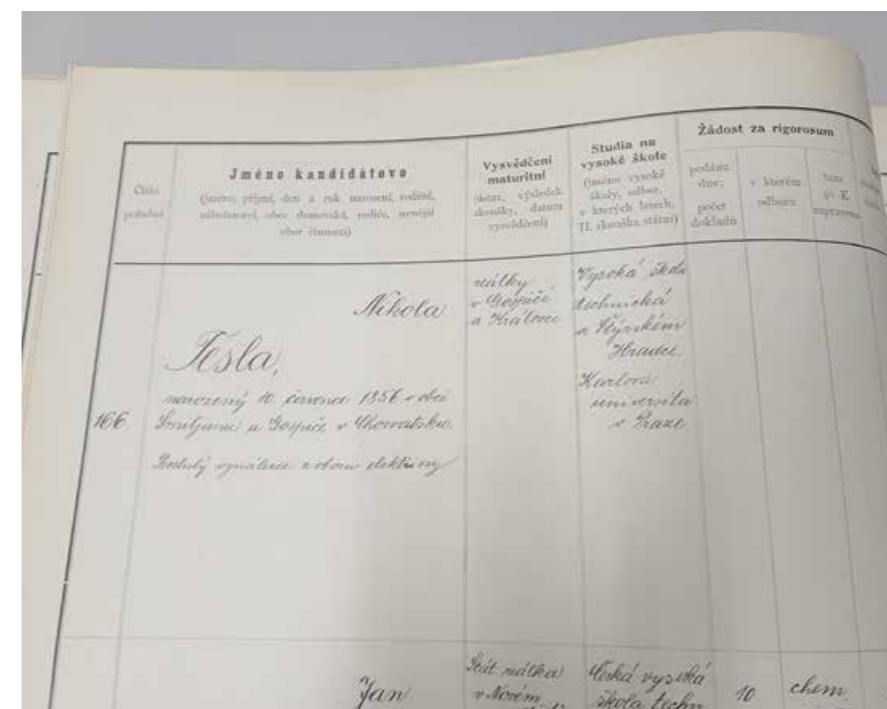 Číslo
pořadné
Jméno kandidátovo
(jméno, příjmí, den a rok narození, rodiště,
náboženství, obec domovská, rodiče, nynější
obor činnosti)
Vysvědčení
maturitní
(ústav, výsledek
zkoušky, datum
vysvědčení)
Studia na
vysoké škole
(jméno vysoké
školy, odbor,
v kterých letech,
II. zkouška státní)
Žádost za rigorosum
podána
dne;
počet
dokladů
v kterém
odboru
taxa
K
zapravena
166
Nikola
Tesla,
narozený 10. července 1856 v obci
Smiljanu u Gospiče v Chorvatsku.
Proslulý vynálezce z oboru elektřiny
reálky
v Gospiči
a Královci
Vysoká škola
technická
v Štýrském
Hradci.
Karlova
universita
v Praze.
Jan
Stát. reálka
v Novém
Česká vysoká
škola techn
10
chem.